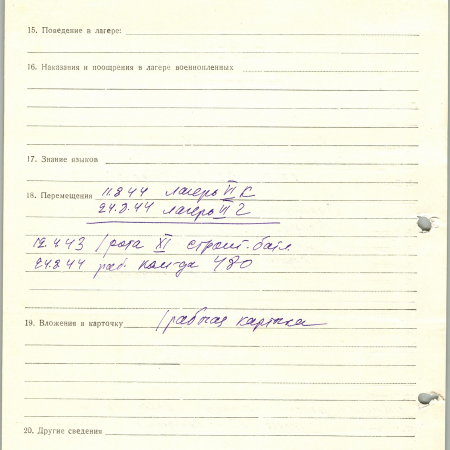 15. Поведение в лагере:
16. Наказания и поощрения в лагере военнопленных
17. Знание языков
18. Перемещения 11.8 44 лагерь VI К
24.8.44 лагерь VI
12.4 43 рота XI строит. бат
24.8.44 раб. ком-да 480
19. Вложения в карточку рабочая карточка
20. Другие сведения